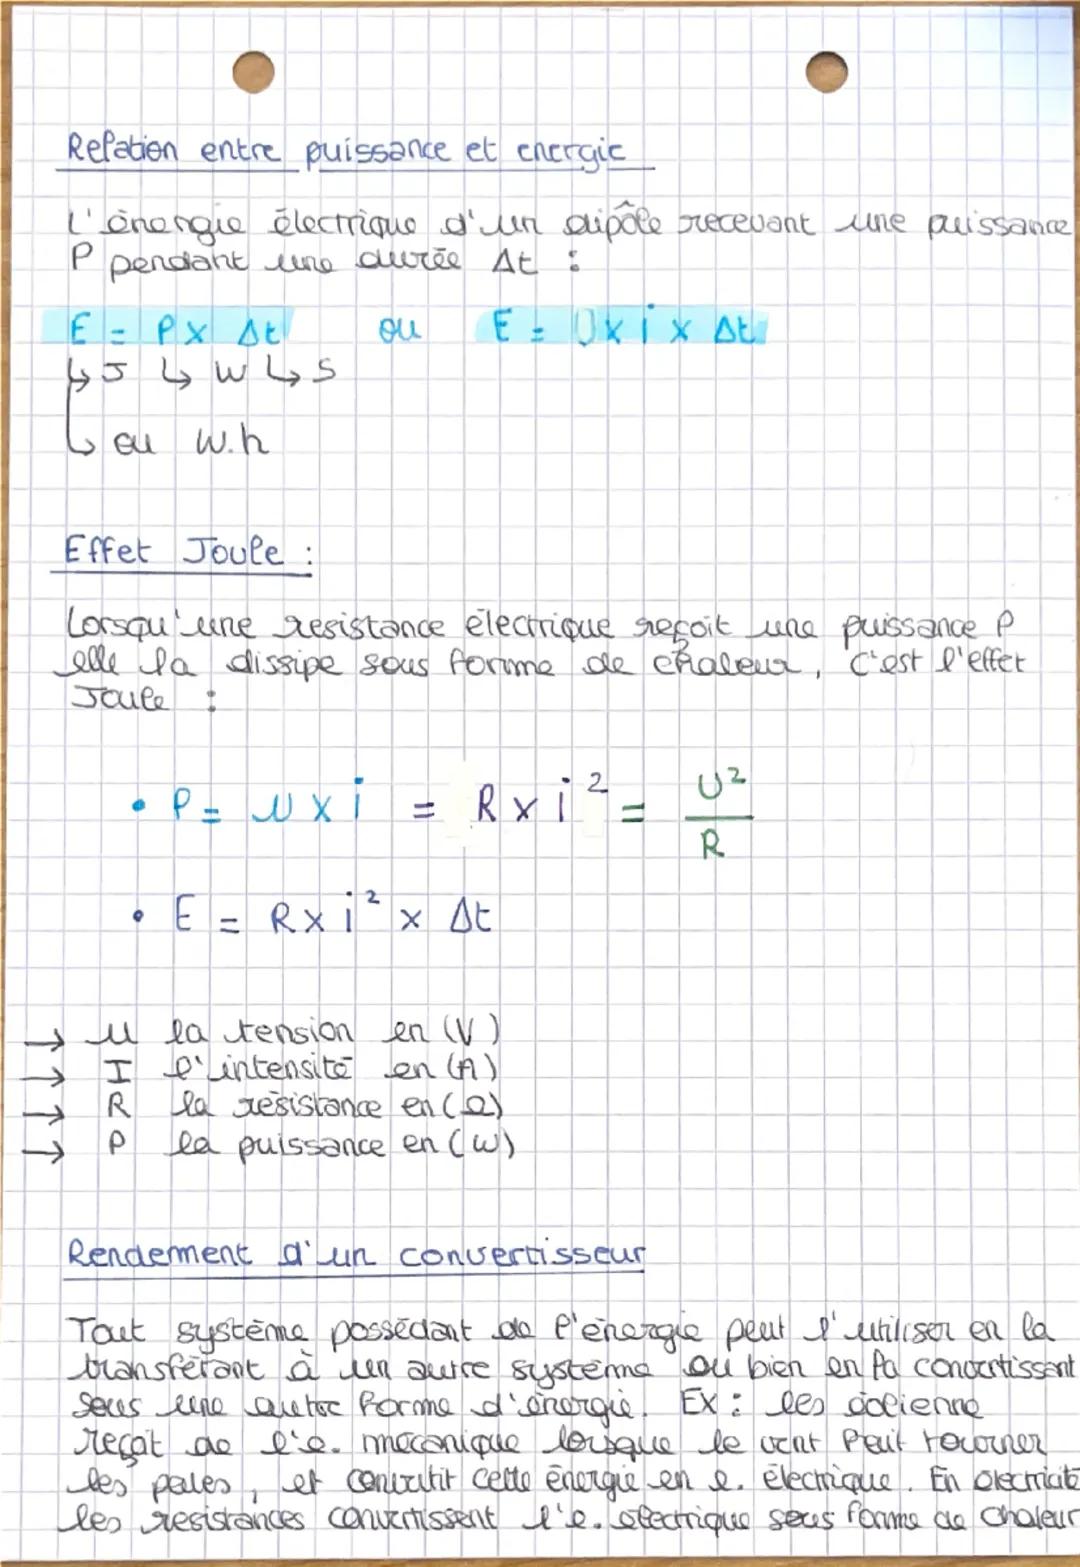 Relation entre puissance et energie
L'énergie électrique d'un dipôle recevant une puissance
P pendant une durée Δt :
E = P x Δt ou E = U x i x Δt
↳ J ↳ W ↳ S
↳ ou W.h
Effet Joule :
Lorsqu'une resistance électrique reçoit une puissance P
elle la dissipe sous forme de chaleur, c'est l'effet
Joule :
• P = U x i = R x i² = U²/R
• E = R x i² x Δt
→ U la tension en (V)
→ I l'intensité en (A)
→ R la résistance en (Ω)
→ P la puissance en (W)
Rendement d'un convertisseur
Tout système possédant de l'énergie peut l'utiliser en la
transférant à un autre système ou bien en la convertissant
sous une autre forme d'énergie. Ex : les éolienne
reçoit de l'e. mécanique lorsque le vent fait tourner
les pales, et convertit cette énergie en e. électrique. En electricité
les resistances convertissent l'e. electrique sous forme de chaleur